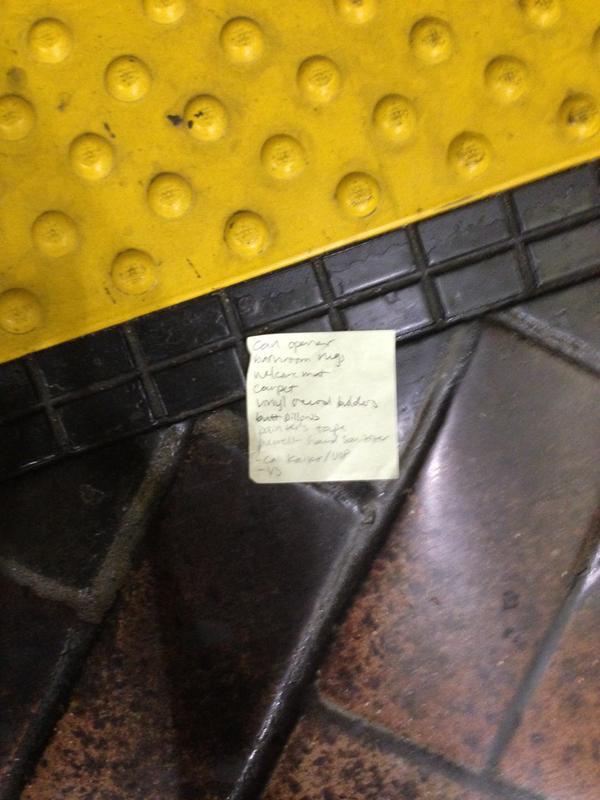 can opener
bathroom rugs
welcome mat
carpet
vinyl record holders
butt pillows
painter's tape
purell hand sanitizer
- Call Kaiser/
- VS